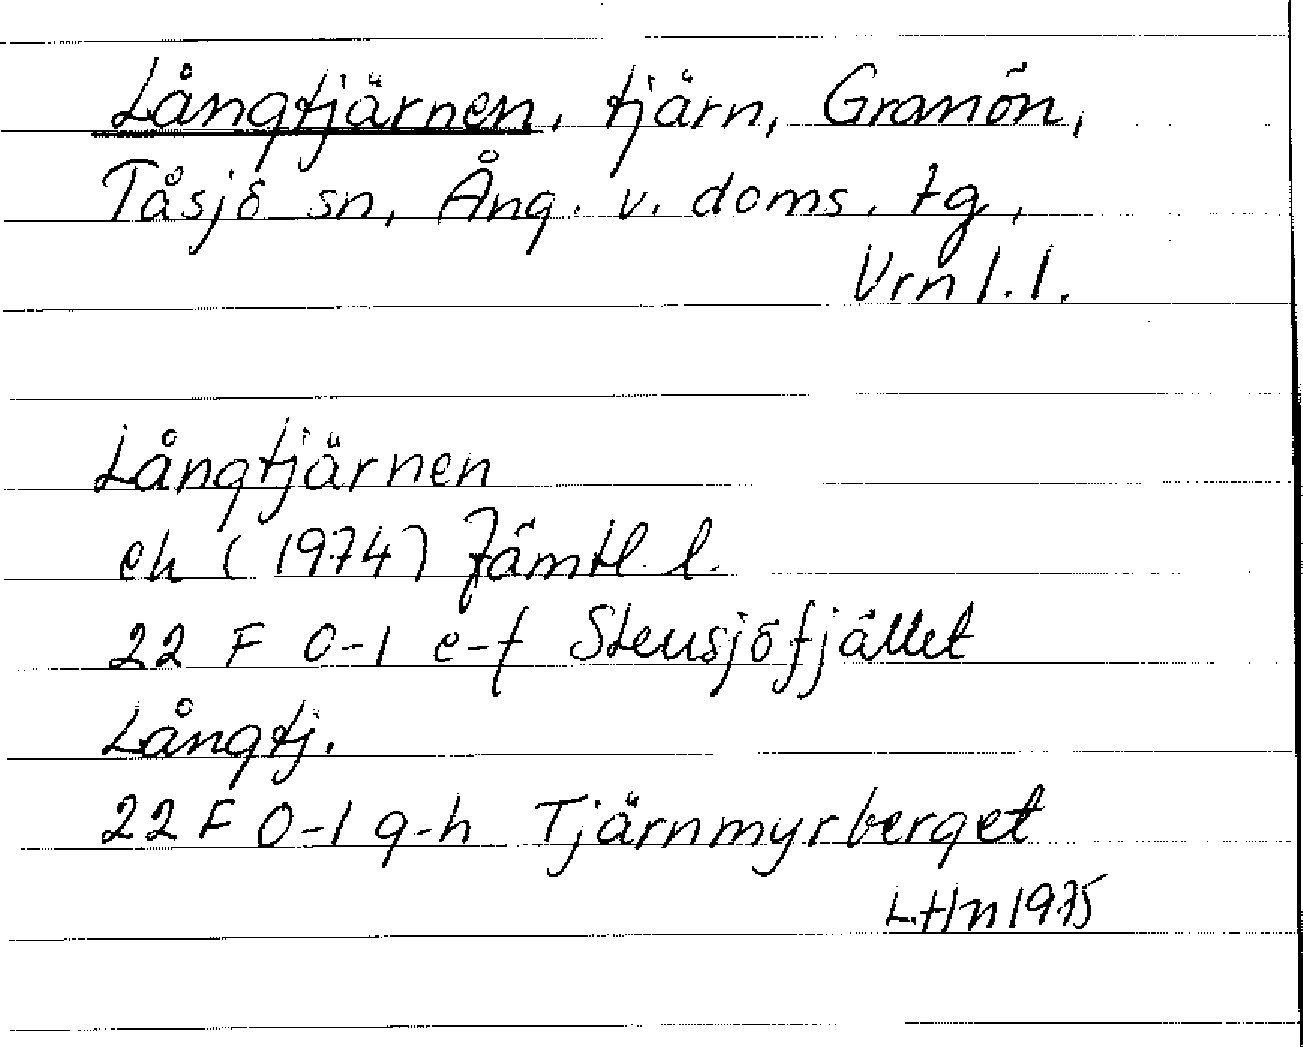 Långtjärnen, tjärn, Granön,
Tåsjö sn, Ång. v. doms. tg,
Vrnl.l.
Långtjärnen
ek (1974) Jämtl. l.
22 F 0-1 e-f Stensjöfjället
Långtj.
22 F 0-1 g-h Tjärnmyrberget
LHn 1975